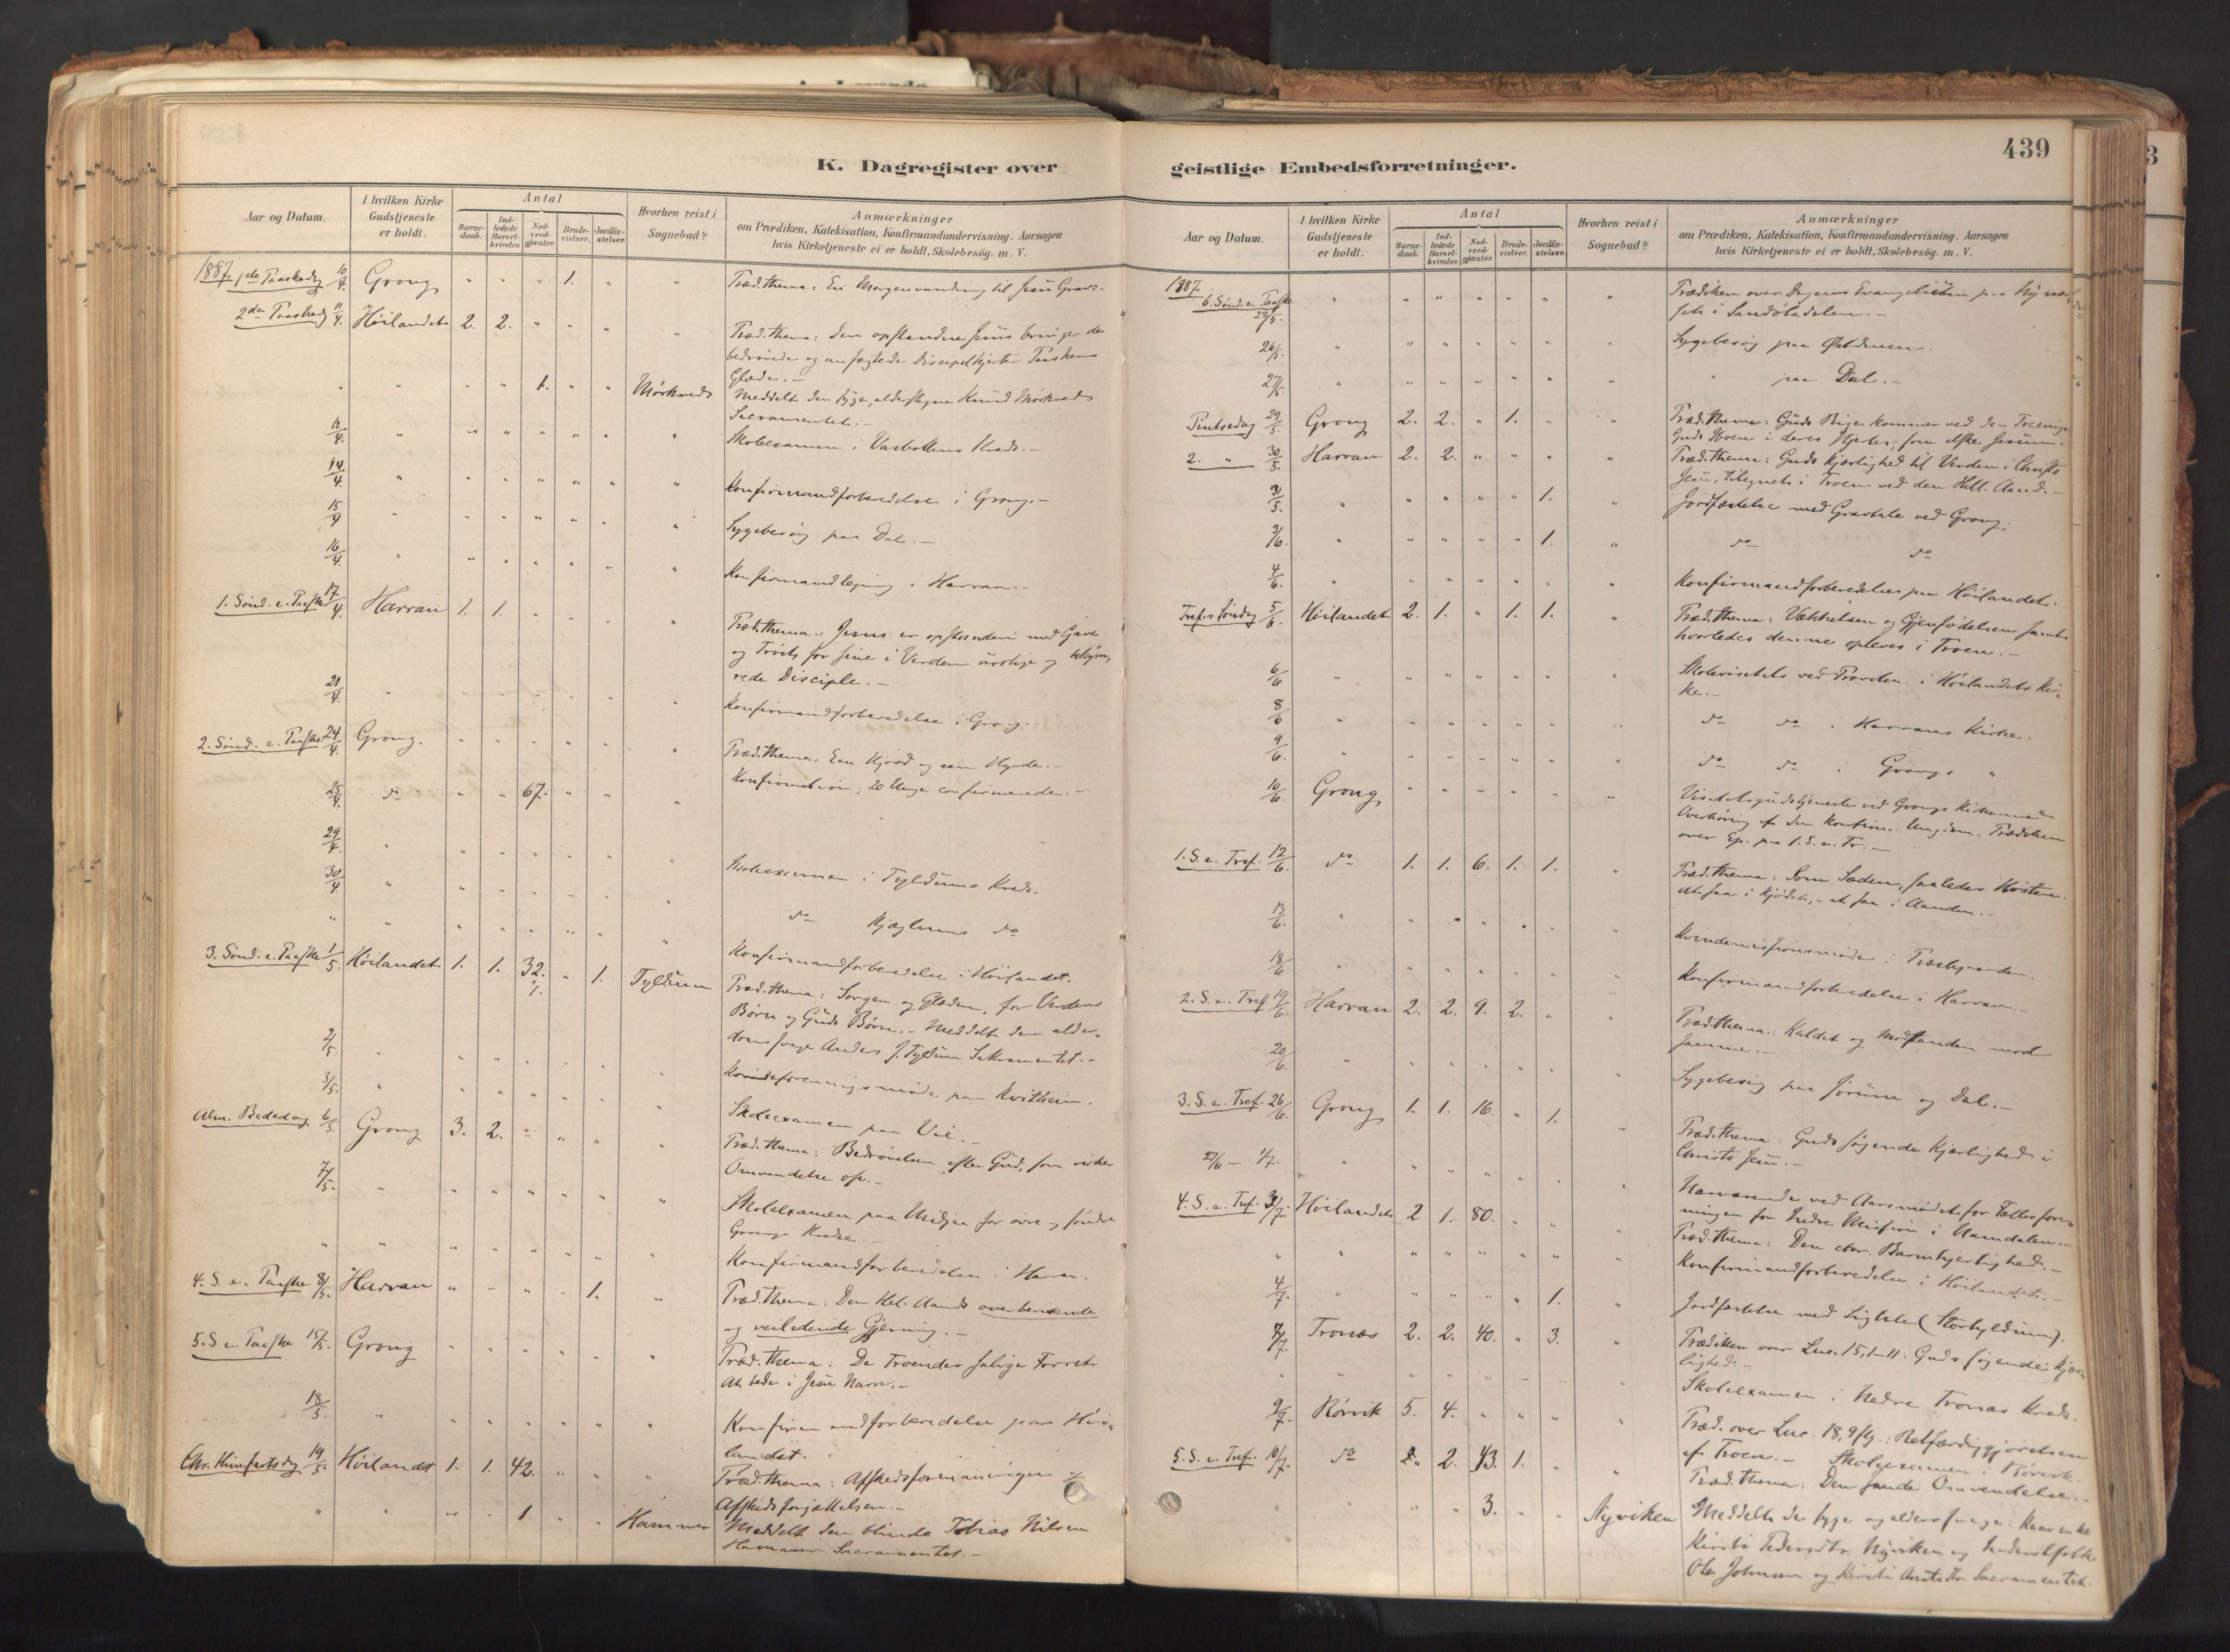 439
K. Dagregister over
geistlige Embedsforretninger.
Aar og Datum.
I hvilken Kirke Gudstjeneste er holdt.
Antal
Barnedaab.
Indledede Barselkvinder.
Nadverdgjæster.
Brudevielser.
Jordfæstelser.
Hvorhen reist i Sognebud?
Anmærkninger
om Prædiken, Katekisation, Konfirmandundervisning. Aarsagen
hvis Kirketjeneste ei er holdt, Skolebesög. m. V.
1887 1ste Paaskedag 10/4. Grong " " " 1. " " Præd.thema: En Morgenvandring til Jesu Grav.-
2den Paaskedag 11/4. Höilandet 2. 2. " " " Præd.thema: Den opstandne Jesus bringer de
bedrövede og anfægtede Discipelhjerter Paaskens
Glæde.-
" " " " 1. " " Mörkved Meddelt den syge, alderstegne Knud Mörkved
Sacramentet.-
12/4. " " " " " " " Skolexamen i Vaxbottens Kreds.-
14/4. " " " " " " " Konfirmandforberedelse i Grong.-
15/4 " " " " " " Sygebesög paa Dal.-
16/4. " " " " " " Konfirmandlæsning i Harran.-
1. Sönd. e. Paaske 17/4. Harran 1. 1. " " " " Præd.thema: Jesus er opstanden med Gave
og Tröst for sine i Verden ürolige og bekym-
rede Disciple.-
21/4. " " " " " " Konfirmandforberedelse i Grong.-
2. Sönd. e. Paaske 24/4. Grong. " " " " " " Præd.thema: Een Hjord og een Hyrde.-
25/4. do " " 67. " " " Konfirmation; 20 Unge confirmerede.-
29/4. " " " " " " Skolexamen i Tyldums Kreds.
30/4 " " " " " " " do Kjæglums do
" " " " " " " Konfirmandforberedelse i Höilandet.
3. Sönd. e. Paaske 1/5. Höilandet 1. 1. 32. + 1. " 1. Tyldum Præd.thema: Sorgen og Glæden, for Verdens
Börn og Guds Börn.- Meddelt den alder-
domssvage Anders J. Tyldum Sakramentet.-
2/5. " " " " " " Kvindeforeningsmöde paa Kvitheim.
3/5. " " " " " " Skolexamen paa Vie.-
Alm. Bededag 6/5. Grong 3. 2. " " " " Præd.thema: Bedrövelsen efter Gud, som virker
Omvendelse &c.-
7/5. " " " " " " " Skolexamen paa Medjaa for övre og söndre
Grongs Kredse.-
" " " " " " " Konfirmandforberedelse i Harran.
4. S. e. Paaske 8/5. Harran " " " " 1. " Præd.thema: Den Hel. Aands overbevisende
og veiledende Gjerning.-
5. S. e. Paaske 15/5. Grong " " " " " " Præd.thema: De Troendes salige Forret:
At bede i Jesu Navn.-
18/5. " " " " " " " Konfirmandforberedelse paa Höi-
landet.
Chr. Himmelfartsdag 19/5. Höilandet 1. 1. 42. " " " Præd.thema: Afskedsformaningen og
Afskedsforjættelsen.-
" " " " 1. " " Hammer Meddelt den blinde Tobias Nilsen
Hammer Sacramentet.-
Aar og Datum.
I hvilken Kirke Gudstjeneste er holdt.
Antal
Barnedaab.
Indledede Barselkvinder.
Nadverdgjæster.
Brudevielser.
Jordfæstelser.
Hvorhen reist i Sognebud?
Anmærkninger
om Prædiken, Katekisation, Konfirmandundervisning, Aarsagen
hvis Kirketjeneste ei er holdt, Skolebesög. m. V.
1887. 6. Sönd. e. Paaske 22/5. " " " " " " " Prædiken over Dagens Evangelium paa
i Sandöladalen.-
26/5. " " " " " " " Sygebesög paa
27/5 " " " " " " " " paa Dal.-
Pintsedag 29/5. Grong 2. 2. " 1. " " Præd.thema: Guds Rige kommer ved den Treenige
Guds i deres Hjerter, som elske Jesum.
2. " 30/5. Harran 2. 2. " " " " Præd.thema: Guds Kjærlighed til Verden i Christo
Jesu, tilegnet i Troen ved den Hell. Aand.-
31/5. " " " " " 1. " Jordfæstelse med Gravtale ved Grong.
3/6. " " " " " 1. " do do
4/6. " " " " " " " Konfirmandforberedelse paa Höilandet.
Tref.s Söndag 5/6. Höilandet 2. 1. " 1. 1. " Præd.thema: Vækkelsen og Gjenfödelsen samt
hvorledes denne opleves i Troen.-
6/6 " " " " " " " Skolevisitats ved Provsten i Höilandets Kir-
ke.-
8/6 " " " " " " " do do i Harrans Kirke.
9/6. " " " " " " " do do i Grongs "
10/6. Grong " " " " " " Visitatsgudstjeneste ved Grongs Kirke med
Overhöring af den konfirm. Ungdom. Prædiken
over Ep. paa 1. S. e. Tr.-
1. S. e. Tref. 12/6. do 1. 1. 6. 1. 1. " Præd.thema: Som Sæden, saaledes Hösten.
At saa i Kjödet,- at saa i Aanden.-
13/6. " " " " " " Kvindemissionsmöde i Præstegaarden.
18/6 " " " " " " Konfirmandforberedelse i Harran.-
2. S. e. Tref. 19/6. Harran 2. 2. 9. 2. " " Præd.thema: Kaldet og Modstanden mod
samme.-
20/6. " " " " " " Sygebesög paa Jörum og Dal.-
3. S. e. Tref. 26/6. Grong 1. 1. 16. " 1. " Præd.thema: Guds sögende Kjærlighed i
Christo Jesu.-
27/6 - 1/7. " " " " " " " Nærværende ved Aarsmödet for Fællesfore-
ningen for Indre Mission i Namdalen.-
4. S. e. Tref. 3/7. Höilandet 2 1. 80. " " " Præd.thema: Den chr. Barmhjertighed.-
" " " " " " " Konfirmandforberedelse i Höilandet.-
4/7. " " " " " 1. " Jordfæstelse med Ligtale (Stortyldum).
8/7. Trones 2. 2. 40. " 3. Prædiken over Luc. 15, 1-11: Guds sögende Kjær-
lighed.-
" " " " " " Skolexamen i Nedre Trones Kreds.
9/7. Rörvik 5. 4. " " " " Præd. over Luc. 18, 9 flg.: Retfærdiggjörelsen
af Troen.- Skolexamen i Rörvik.
5. S. e. Tref. 10/7. do 2. 43. 1. " " Præd.thema: Den sande Omvendelse.-
" " " " 3. " " Nyviken Meddelt de syge og alderssvage: Kaarenke
Kirsti Pedersdtr. Nyviken og
Ole Johnsen og Kirsti Sacramentet.